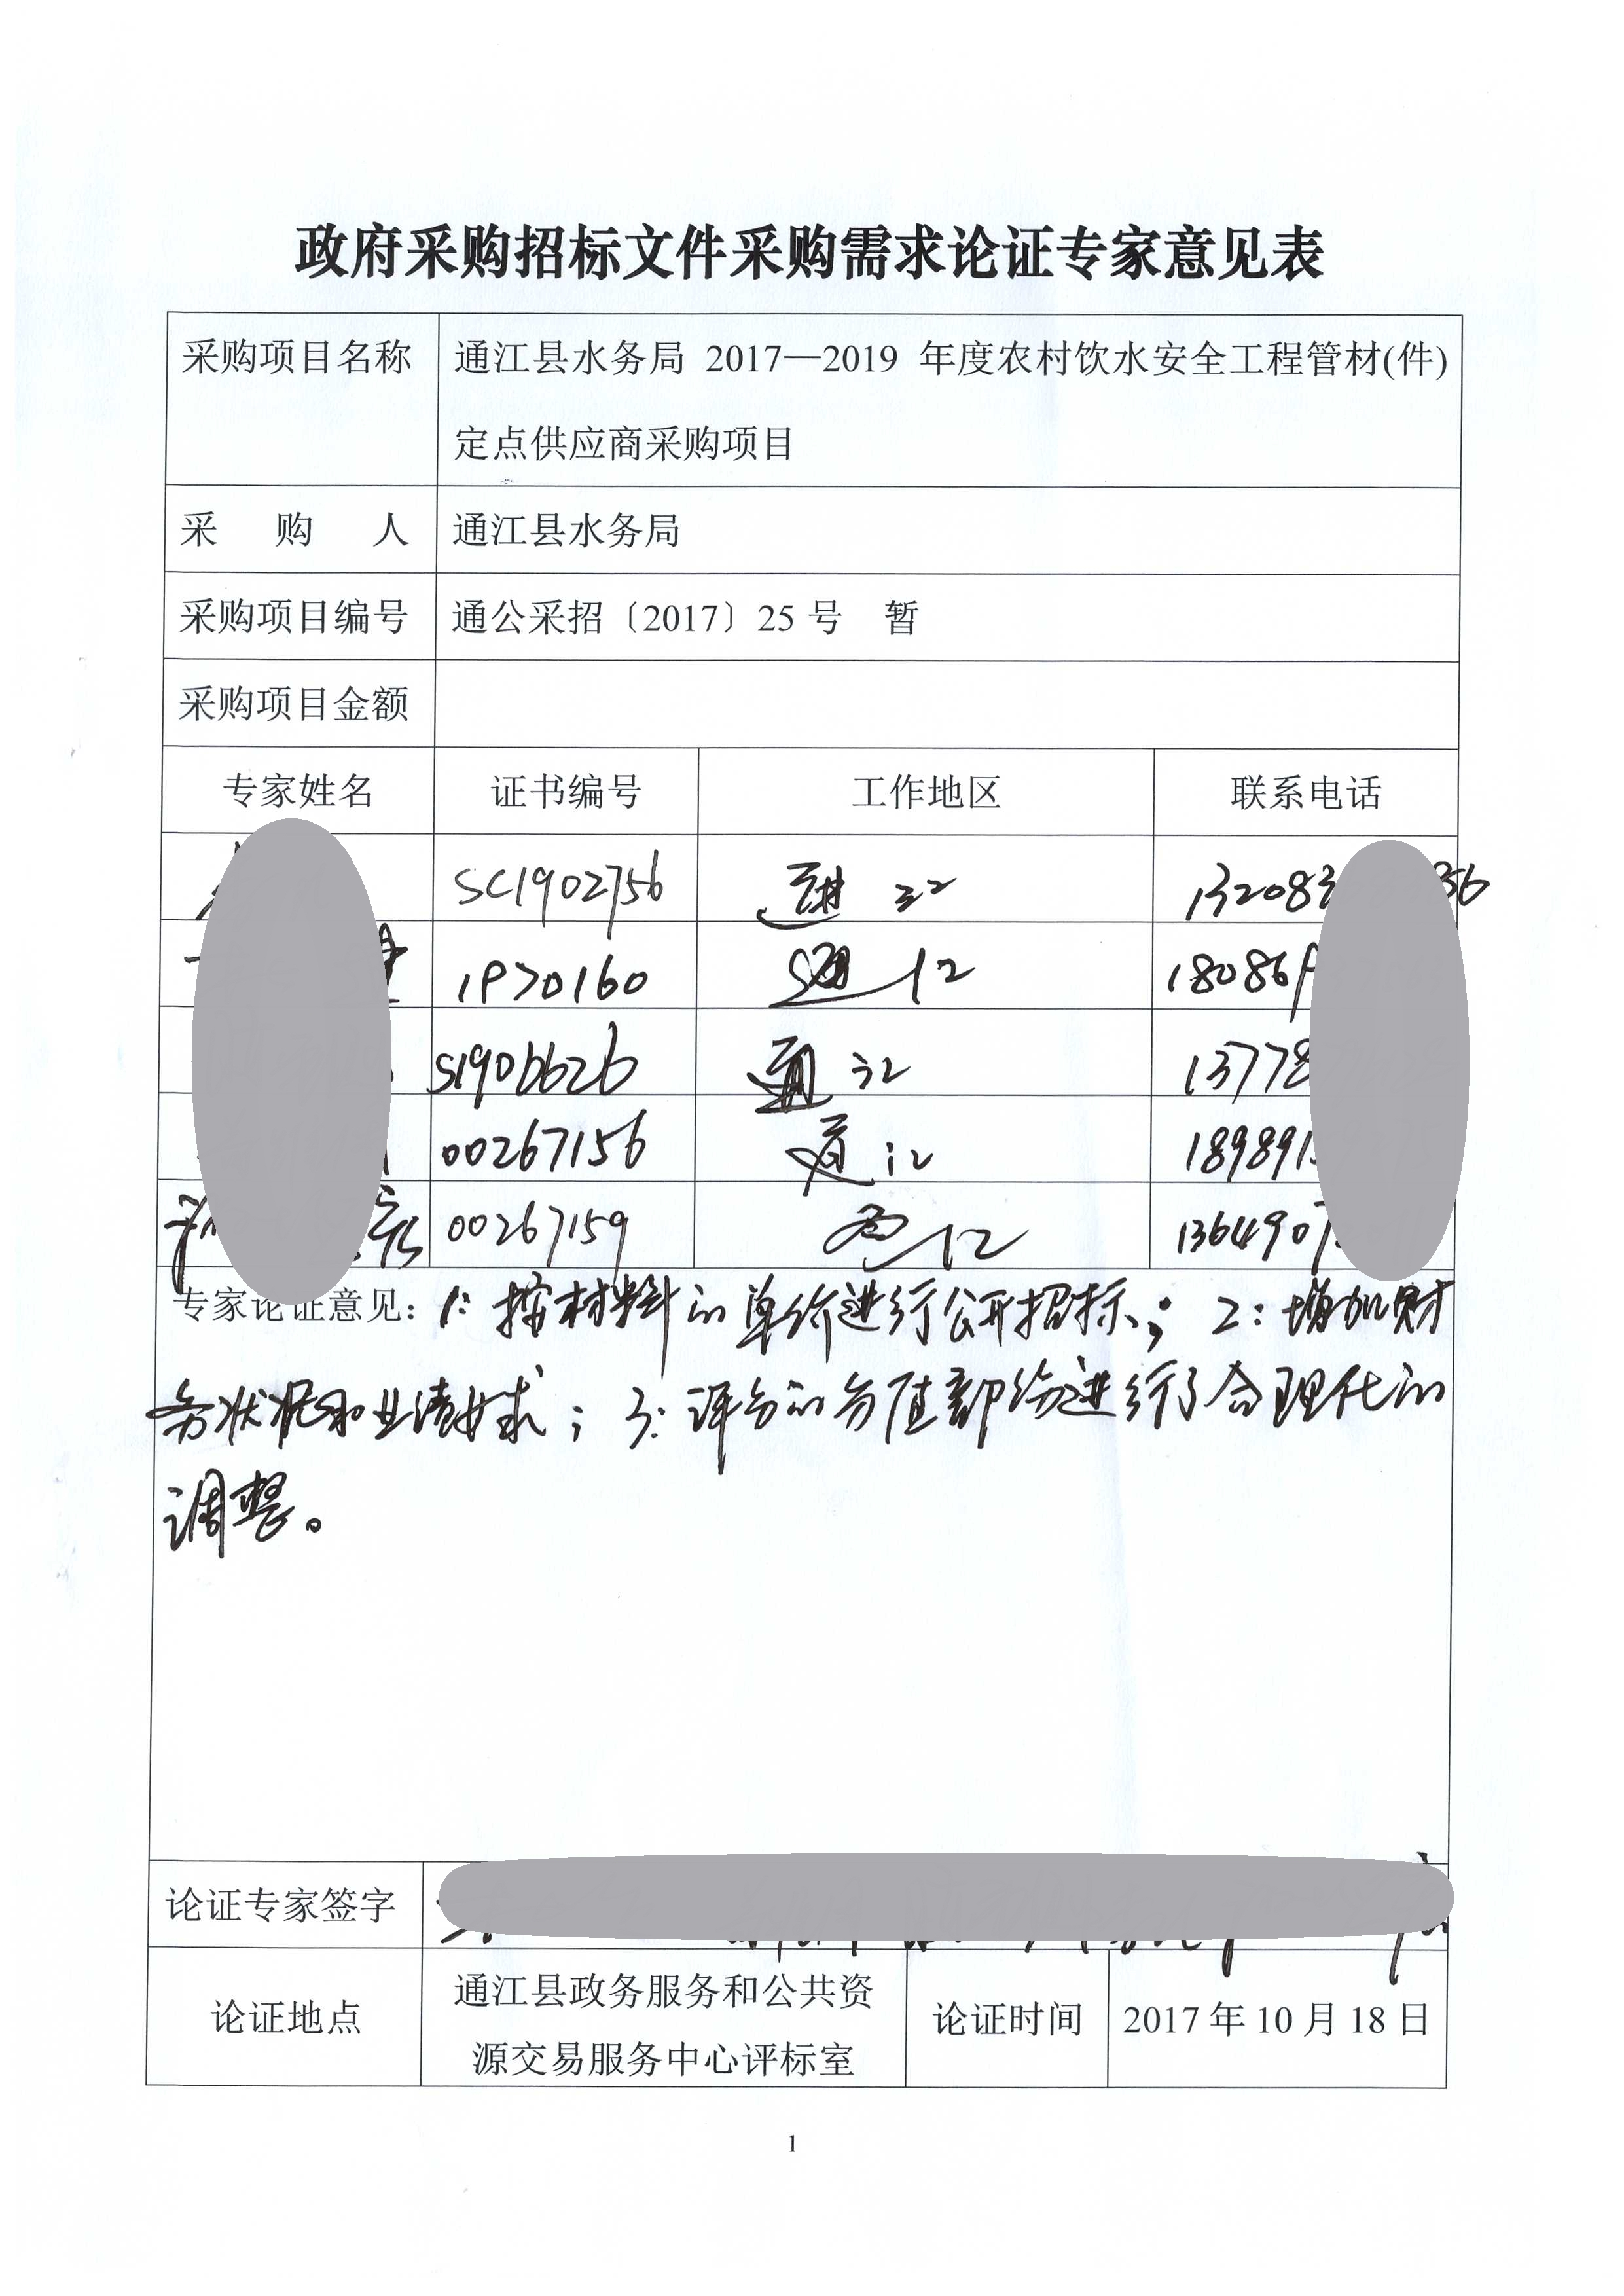 政府采购招标文件采购需求论证专家意见表
采购项目名称 通江县水务局 2017—2019 年度农村饮水安全工程管材(件)
定点供应商采购项目
采 购 人 通江县水务局
采购项目编号 通公采招〔2017〕25 号 暂
采购项目金额
专家姓名 证书编号 工作地区 联系电话
SC1902756 通江
通江 18086
S1906626 通江 13778
00267156 通江 189891
00267159 1364907
专家论证意见：1：按材料的单价进行公开招标；2：增加财
务状况和业绩要求；3：评分的分值部份进行了合理化的
调整。
论证专家签字
论证地点 通江县政务服务和公共资
源交易服务中心评标室 论证时间 2017 年 10 月 18 日
1